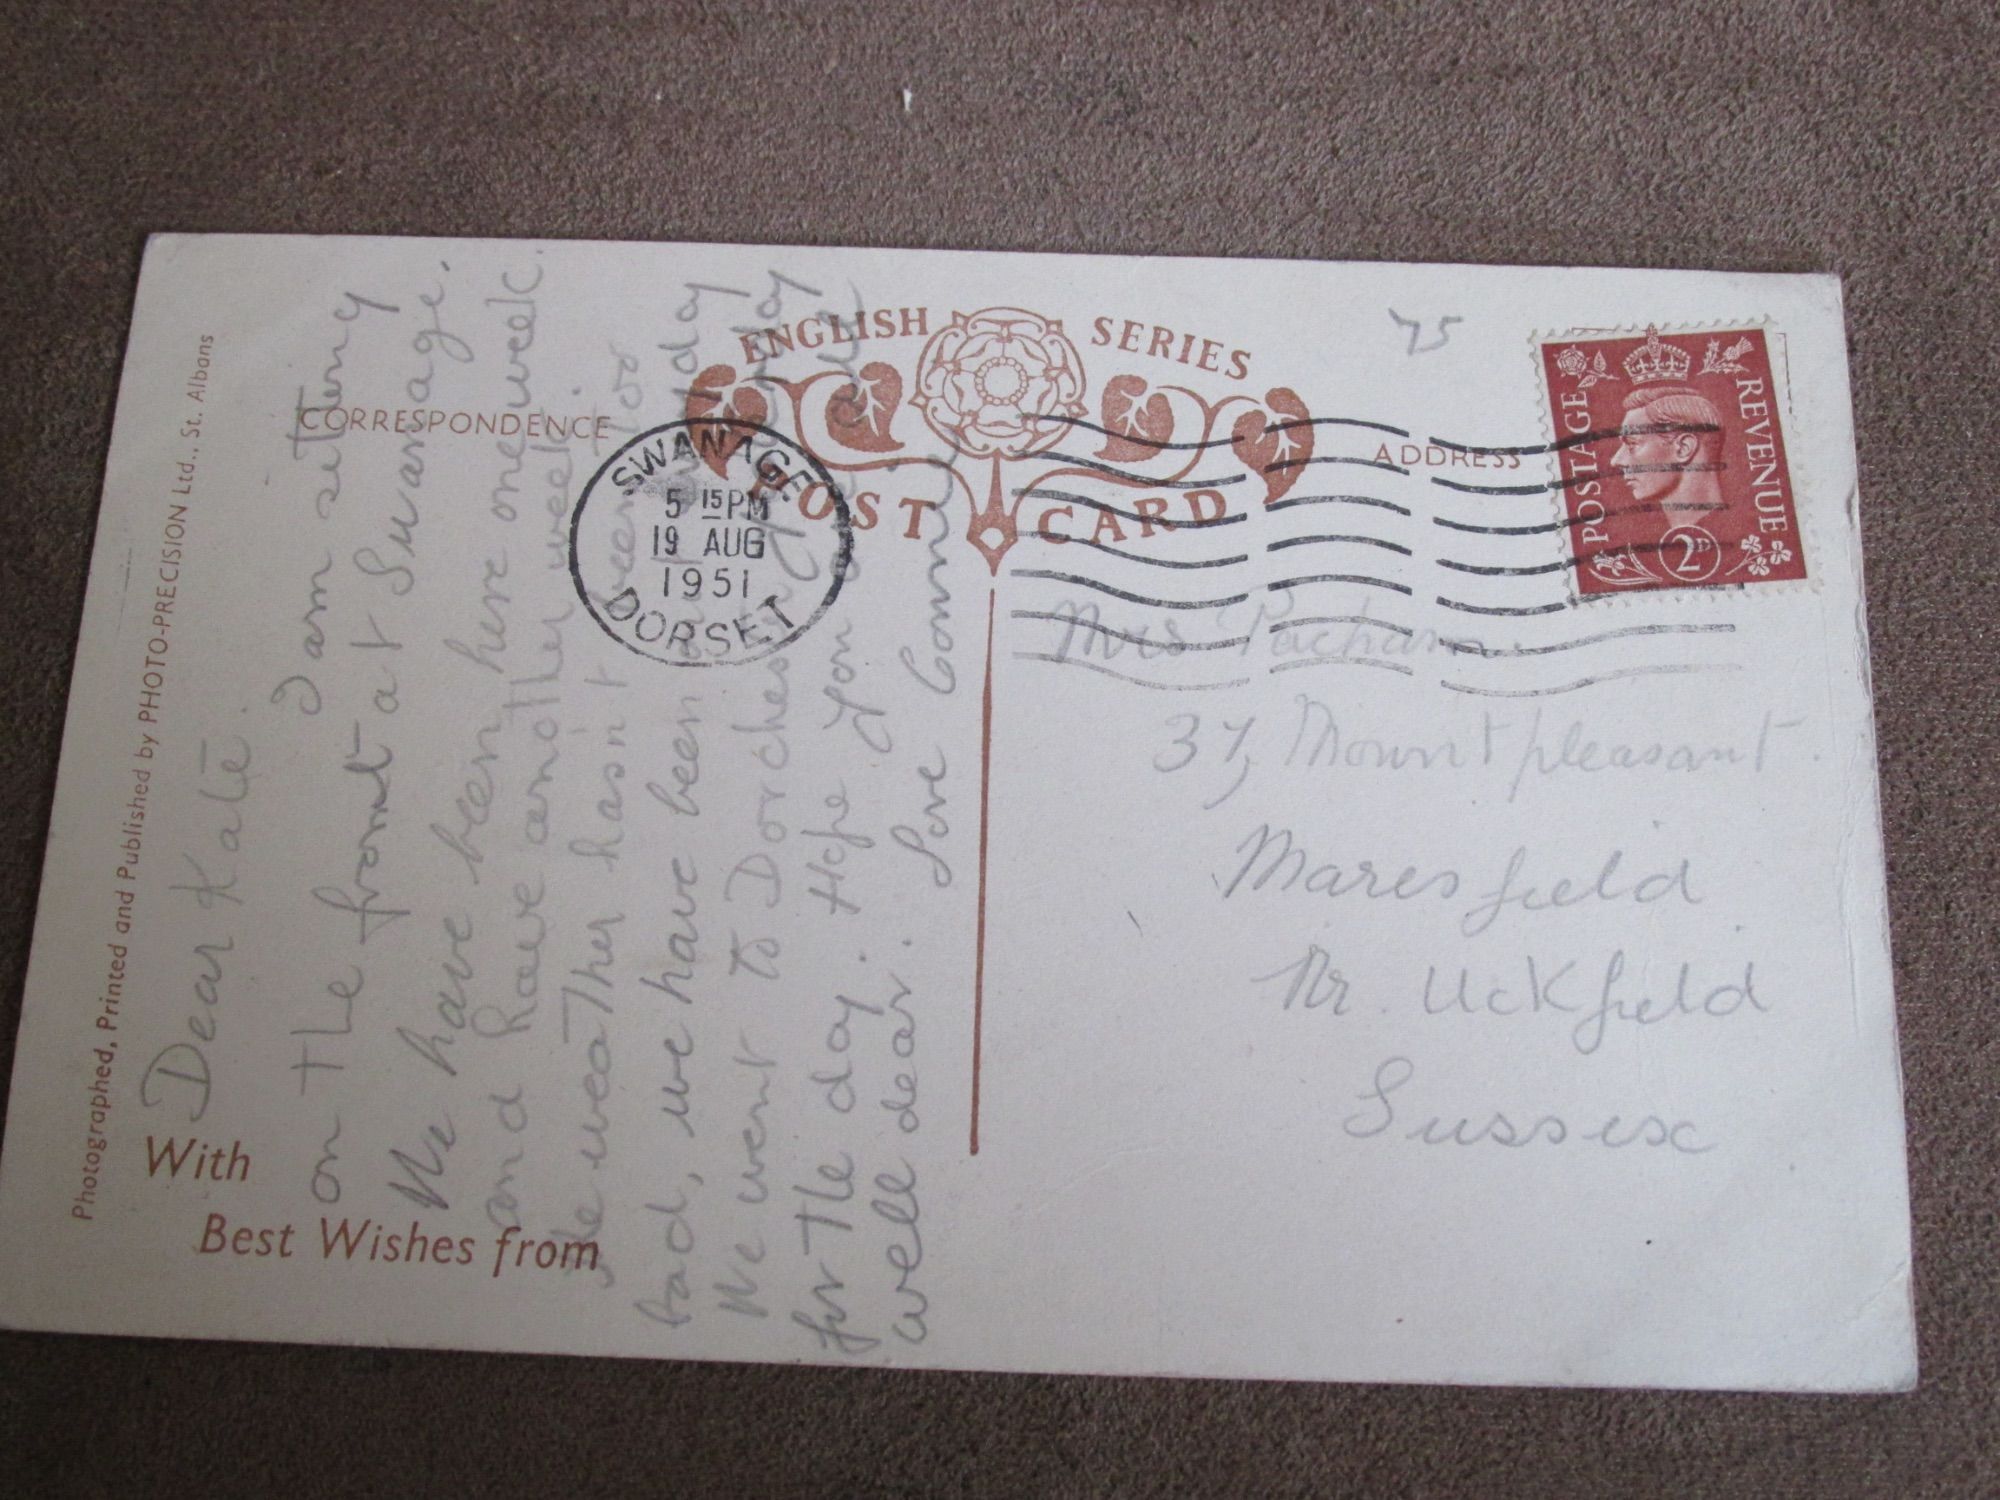 Photographed, Printed and Published by PHOTO-PRECISION Ltd., St. Albans
With
Best Wishes from
CORRESPONDENCE
ENGLISH SERIES
POST CARD
ADDRESS
75
POSTAGE REVENUE
2D
SWANAGE
5 15 PM
19 AUG
1951
DORSET
Dear Kate.
I am setting
on the front at Swanage.
We have been here one week
and have another week.
The weather hasn't been too
bad, we have been out everyday
We went to Dorchester yesterday
for the day. Hope you are quite
well dear. Love Connie
Mrs Pacham.
37, Mount pleasant.
Maresfield
Nr. Uckfield
Sussex